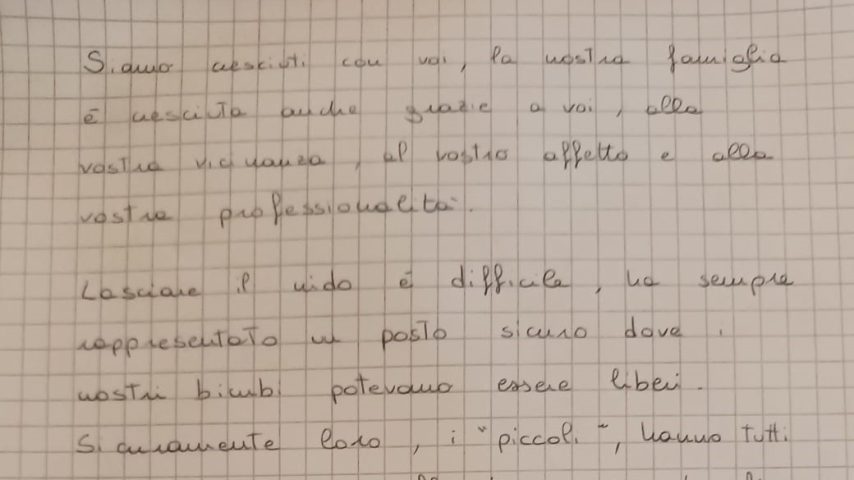 Siamo cresciuti con voi, la nostra famiglia
è cresciuta anche grazie a voi, alla
vostra vicinanza, al vostro affetto e alla
vostra professionalità.
Lasciare il nido è difficile, ha sempre
rappresentato un posto sicuro dove i
nostri bimbi potevano essere liberi.
Sicuramente loro, i "piccoli", hanno tutti